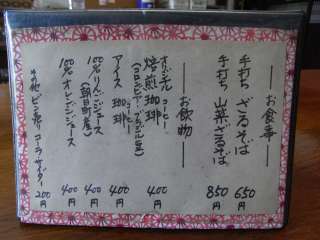 お食事
手打ち ざるそば 650円
手打ち 山菜ざるそば 850円
お飲物
オリジナル
焙煎珈琲 400円
コーヒー
(コロンビア・ブラジル豆)
アイス珈琲 400円
コーヒー
100%りんごジュース 400円
(朝日町産)
100%オレンジジュース 400円
その他 ビン売りコーラ・サイダー 200円